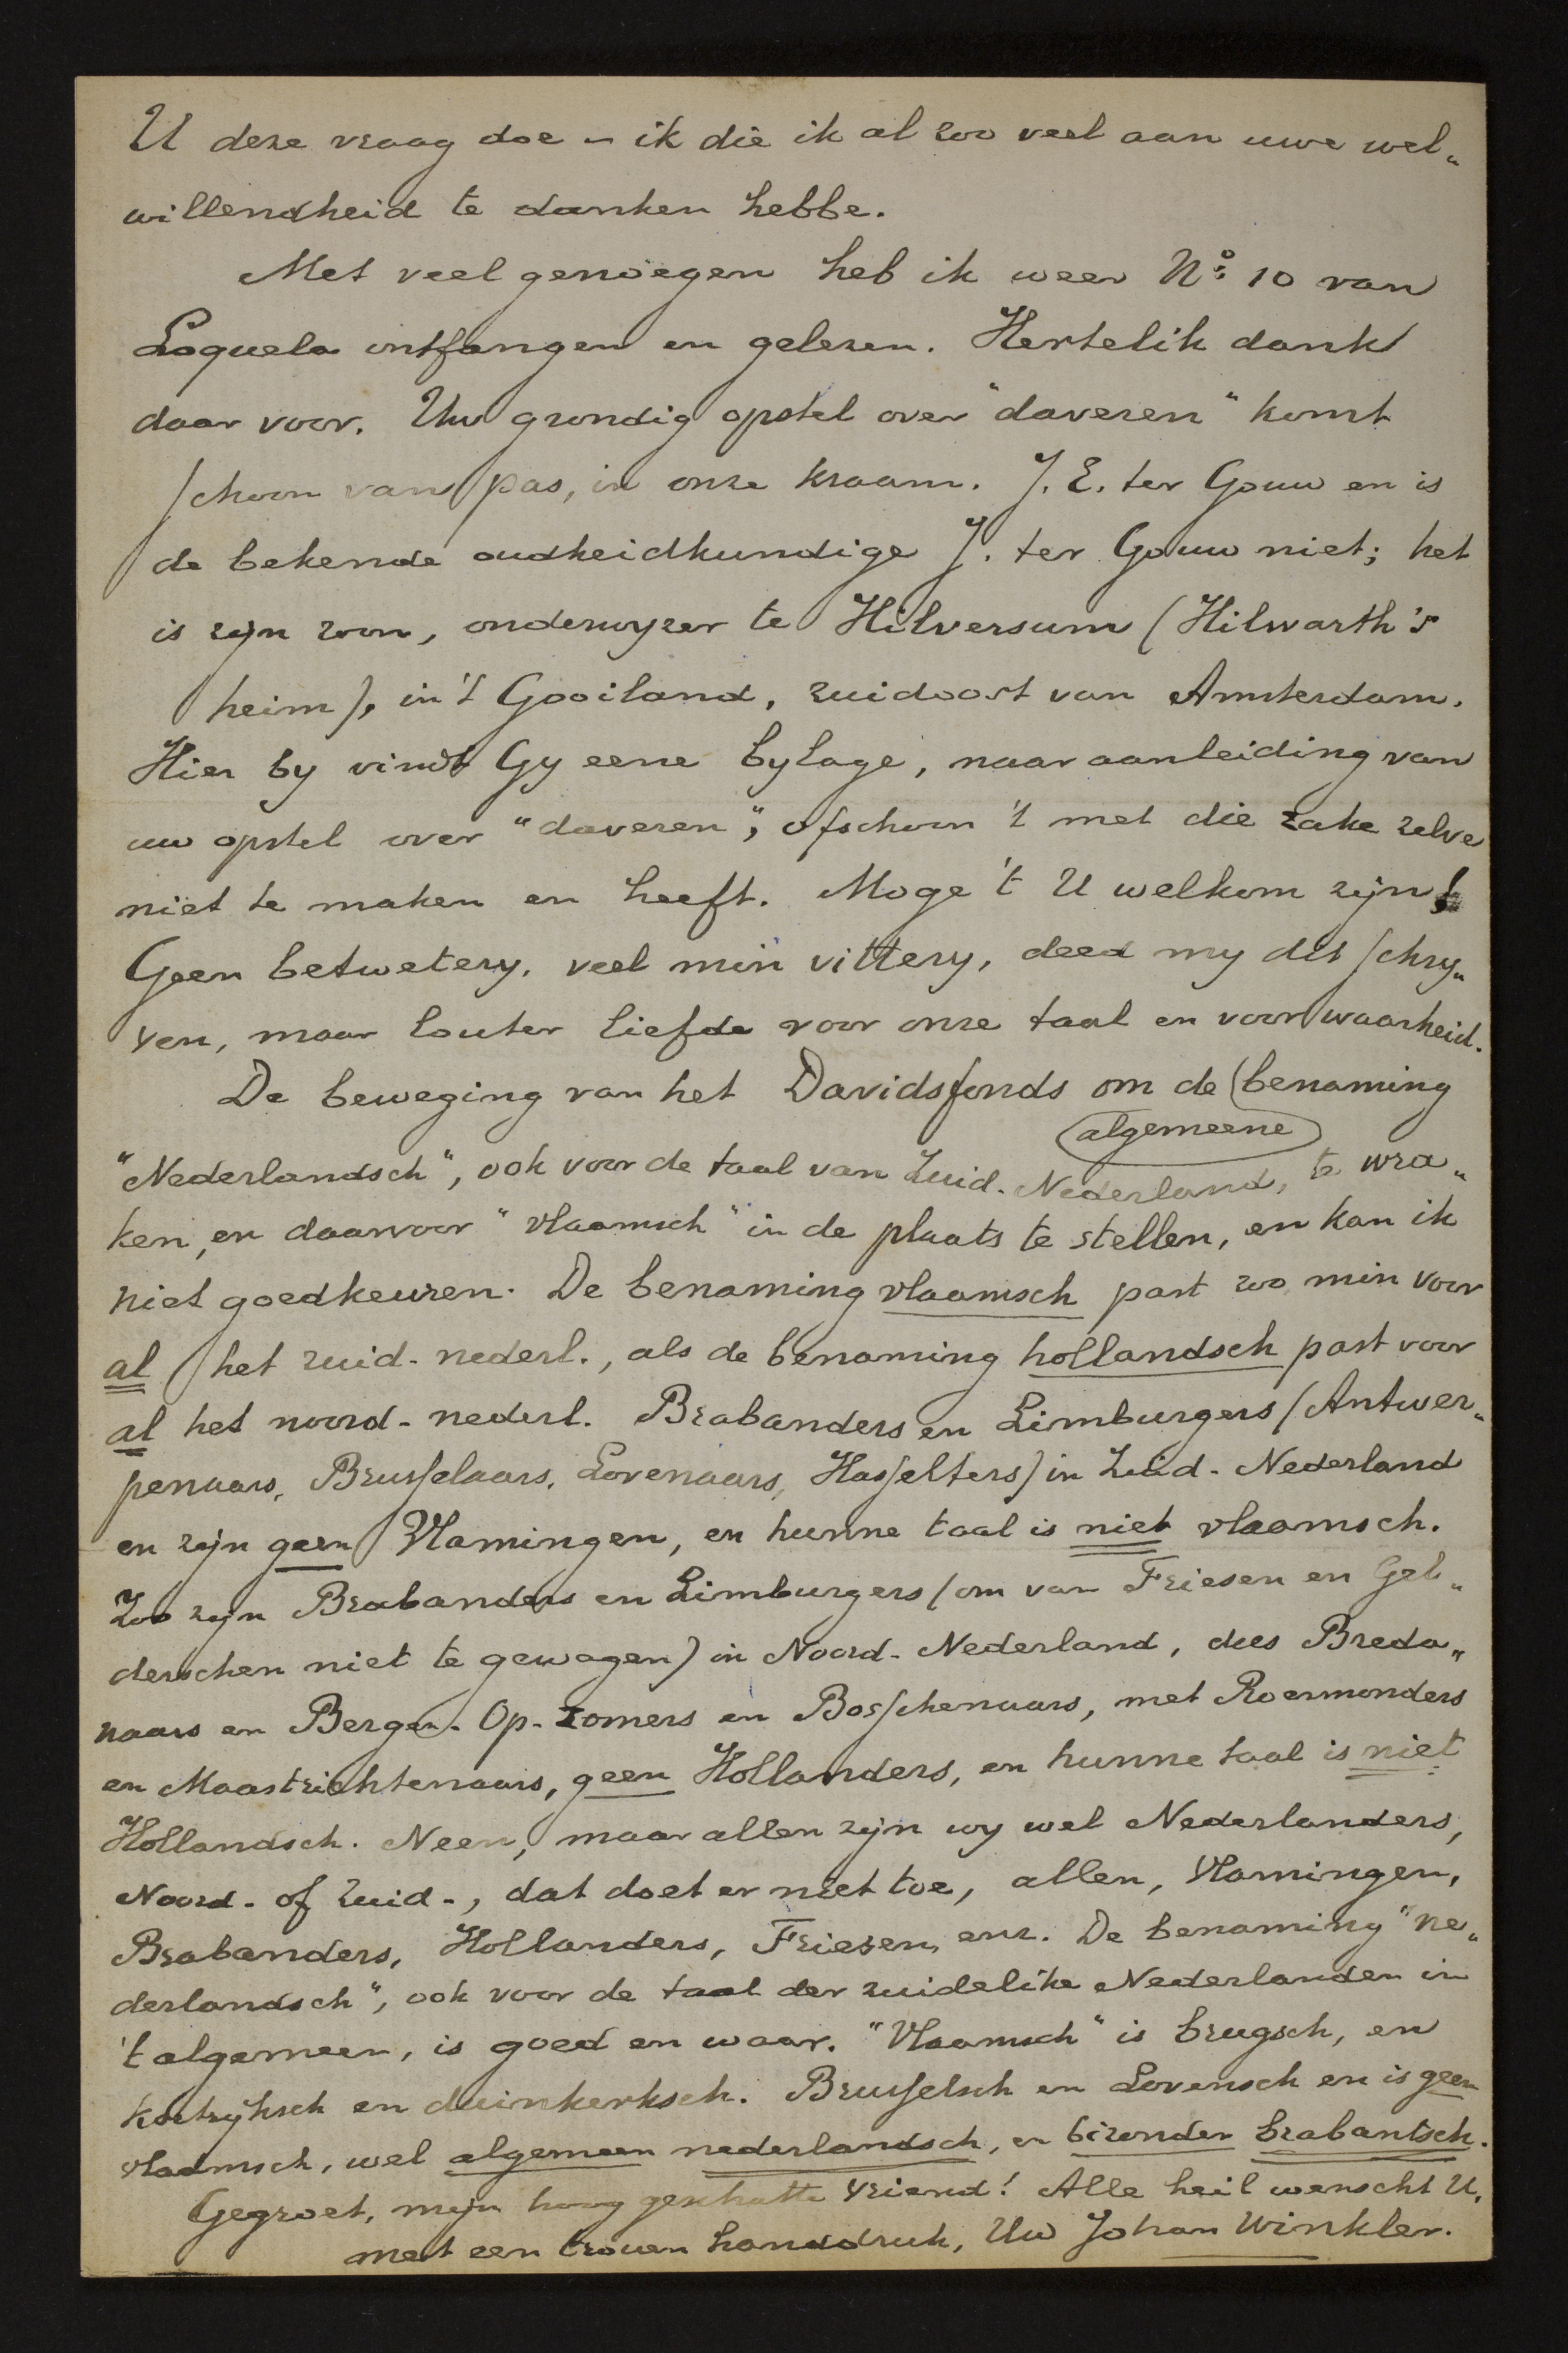 U deze vraag doe – ik die ik al zoo veel aan uwe wel„
willendheid te danken hebbe.
Met veel genoegen heb ik weer No: 10 van
Loquela ontfangen en gelezen. Hertelik dank
daar voor. Uw grondig opstel over "daveren" komt
schoon van pas, in onze kraam. J. E. ter Gouw en is
de bekende oudheidkundige J. ter Gouw niet; het
is zijn zoon, onderwyzer te Hilversum (Hilwarth's
heim), in 't Gooiland, zuidoost van Amsterdam.
Hier by vindt Gy eene bylage, naar aanleiding van
uw opstel over "daveren", ofschoon 't met die zake zelve
niet te maken en heeft. Moge 't U welkom zijn!
Geen betwetery, veel min vittery, deed my dit schry„
ven, maar louter liefde voor onze taal en voor waarheid.
De beweging van het Davidsfonds om de benaming
algemeene
"Nederlandsch", ook voor de taal van Zuid-Nederland, te wra„
ken, en daarvoor "vlaamsch" in de plaats te stellen, en kan ik
niet goedkeuren. De benaming vlaamsch past zoo min voor
al het zuid-nederl., als de benaming hollandsch past voor
al het noord-nederl. Brabanders en Limburgers (Antwer„
penaars, Brusselaars, Lovenaars, Hasselters) in Zuid-Nederland
en zijn geen Vlamingen, en hunne taal is niet vlaamsch.
Zoo zijn Brabanders en Limburgers (om van Friesen en Gel„
derschen niet te gewagen) in Noord-Nederland, dus Breda„
naars en Bergen-Op-Zomers en Bosschenaars, met Roermonders
en Maastrichtenaars, geen Hollanders, en hunne taal is niet
Hollandsch. Neen, maar allen zijn wy wel Nederlanders,
Noord- of Zuid-, dat doet er niet toe, allen, Vlamingen,
Brabanders, Hollanders, Friezen, enz. De benaming "ne„
derlandsch", ook voor de taal der zuidelike Nederlanden in
't algemeen, is goed en waar. "Vlaamsch" is brugsch, en
kortrijksch en duinkerksch. Brusselsch en Lovensch en is geen
vlaamsch, wel algemeen nederlandsch, en bizonder brabantsch.
Gegroet, mijn hoog geschatte vriend! Alle heil wenscht U,
met een trouwen handdruk, Uw Johan Winkler.